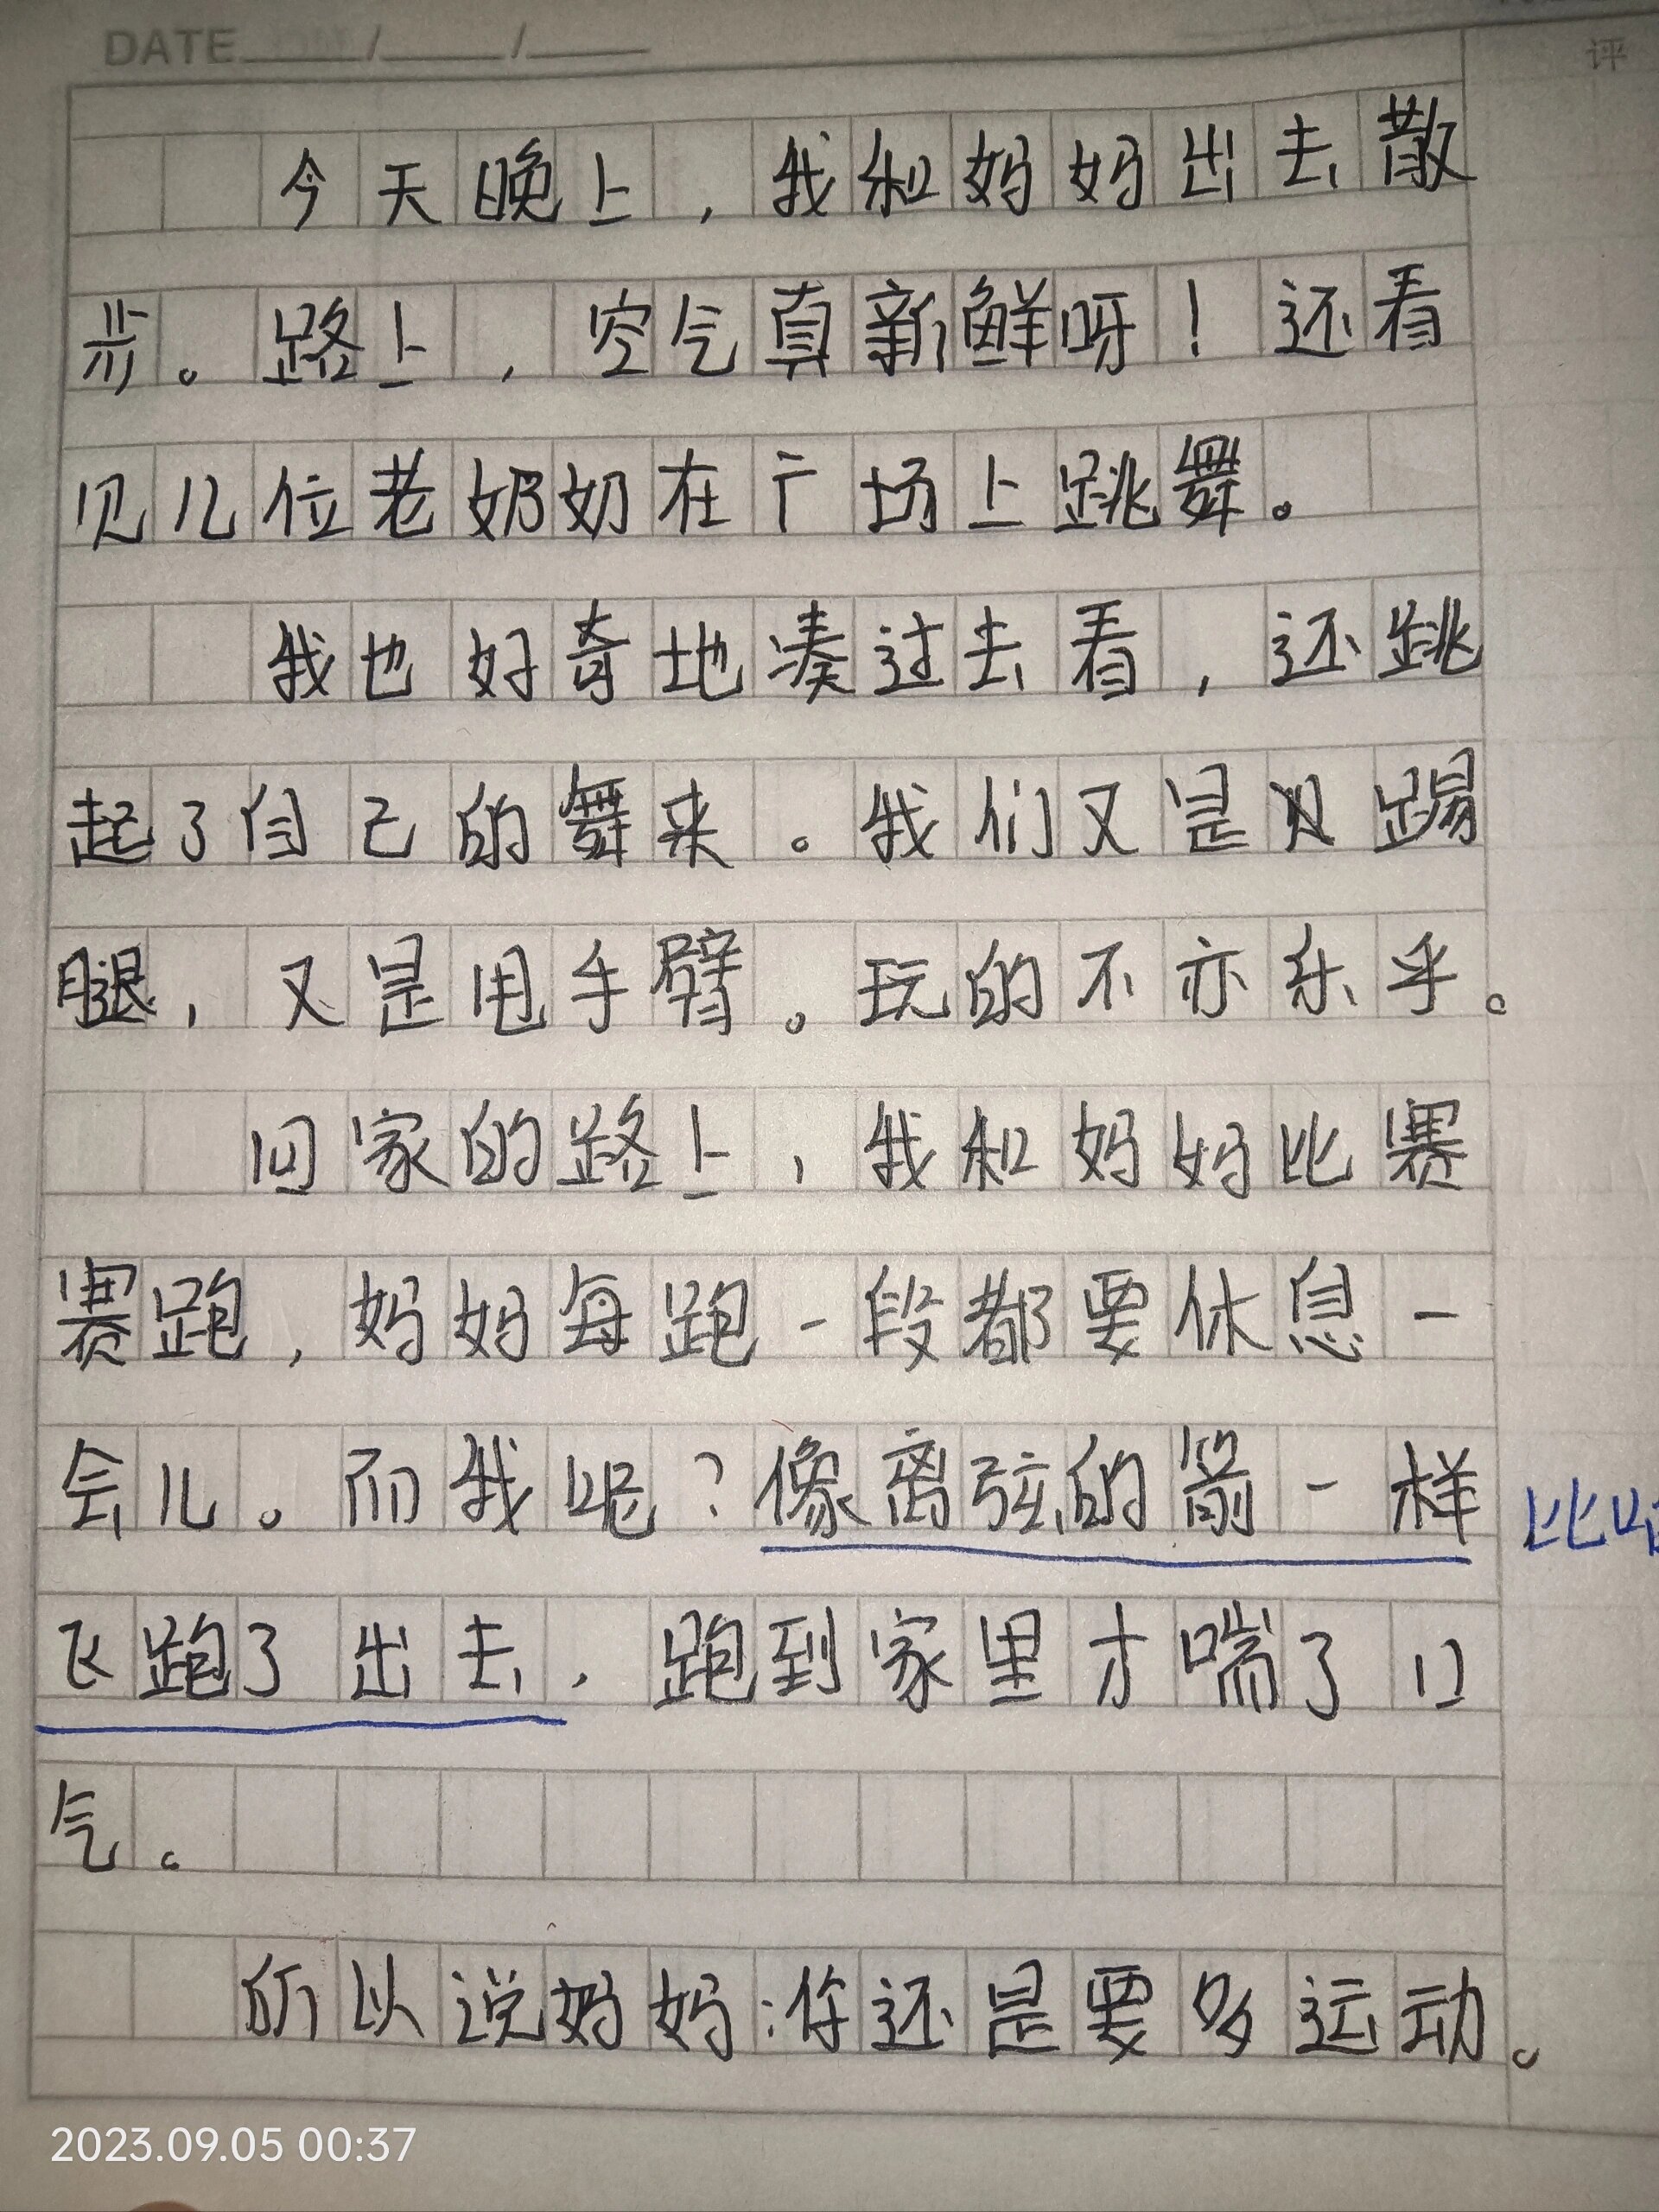 DATE / /
评
今天晚上，我和妈妈出去散
步。路上，空气真新鲜呀！还看
见几位老奶奶在广场上跳舞。
我也好奇地凑过去看，还跳
起了自己的舞来。我们又是踢
腿，又是甩手臂。玩的不亦乐乎。
回家的路上，我和妈妈比赛
赛跑，妈妈每跑一段都要休息一
会儿。而我呢？像离弦的箭一样
比喻
飞跑了出去，跑到家里才喘了口
气。
所以说妈妈：你还是要多运动。
2023.09.05 00:37